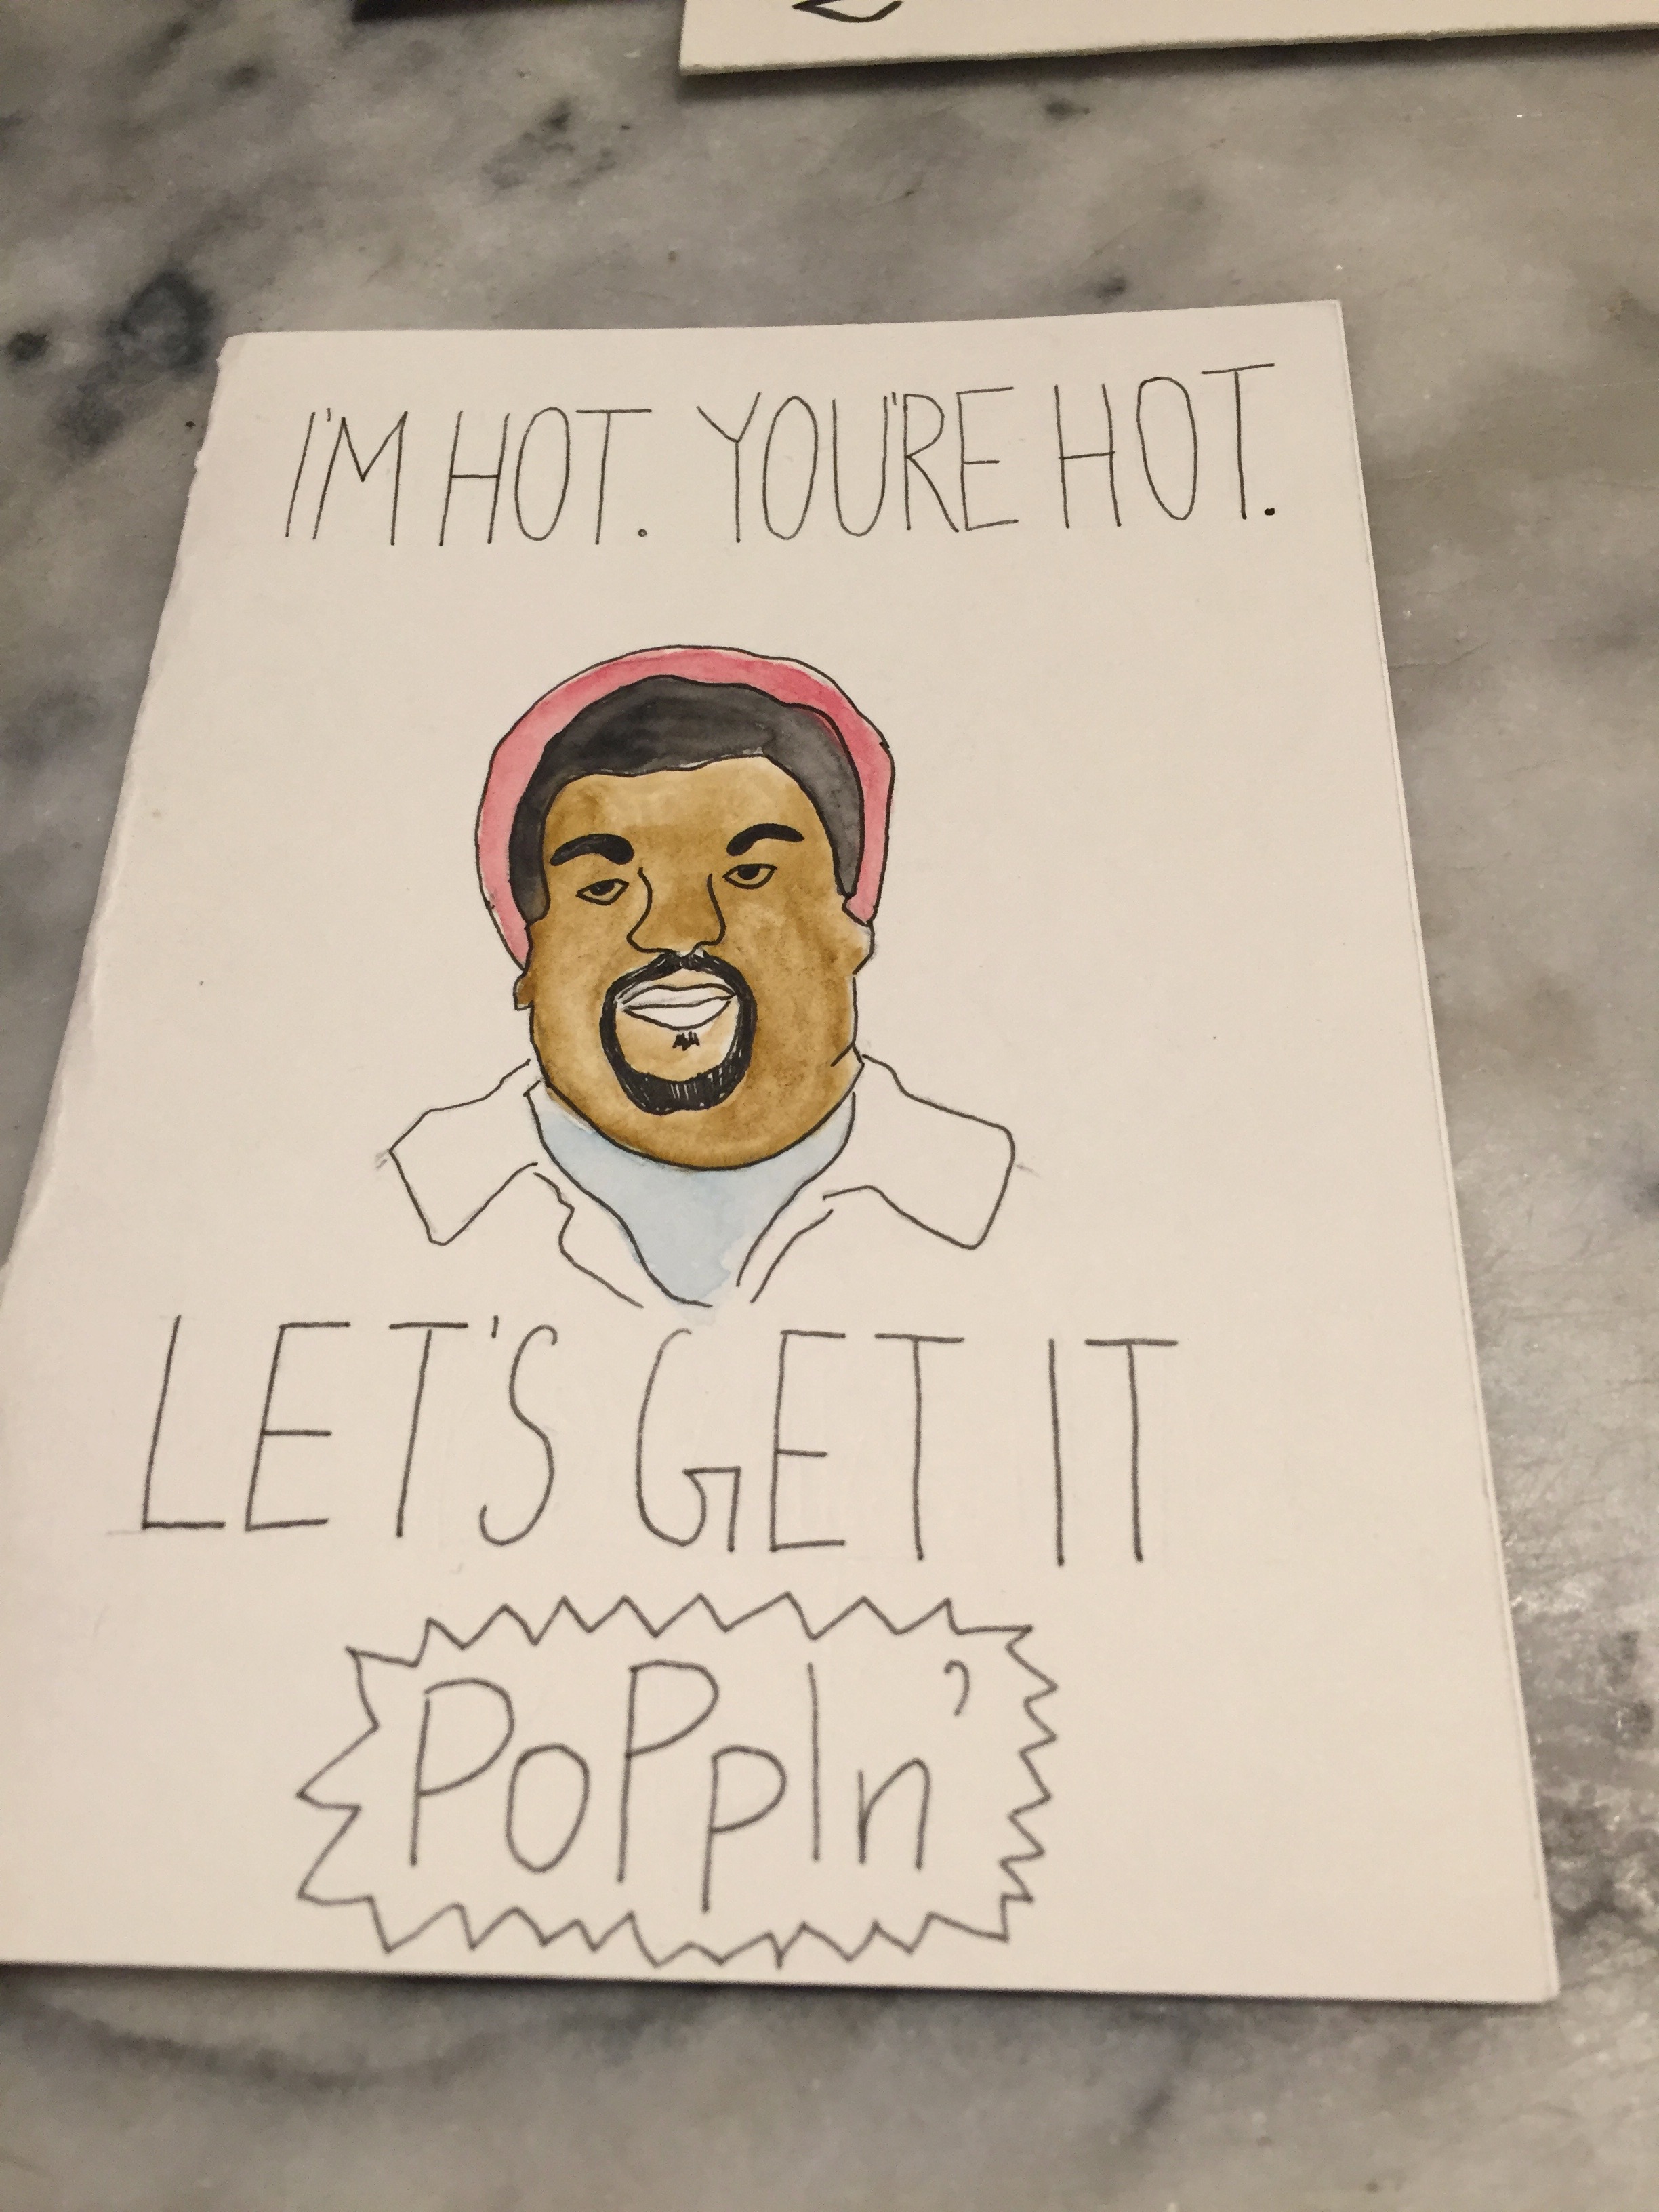 I'M HOT. YOU'RE HOT.
LET'S GET IT
PoPpIn'